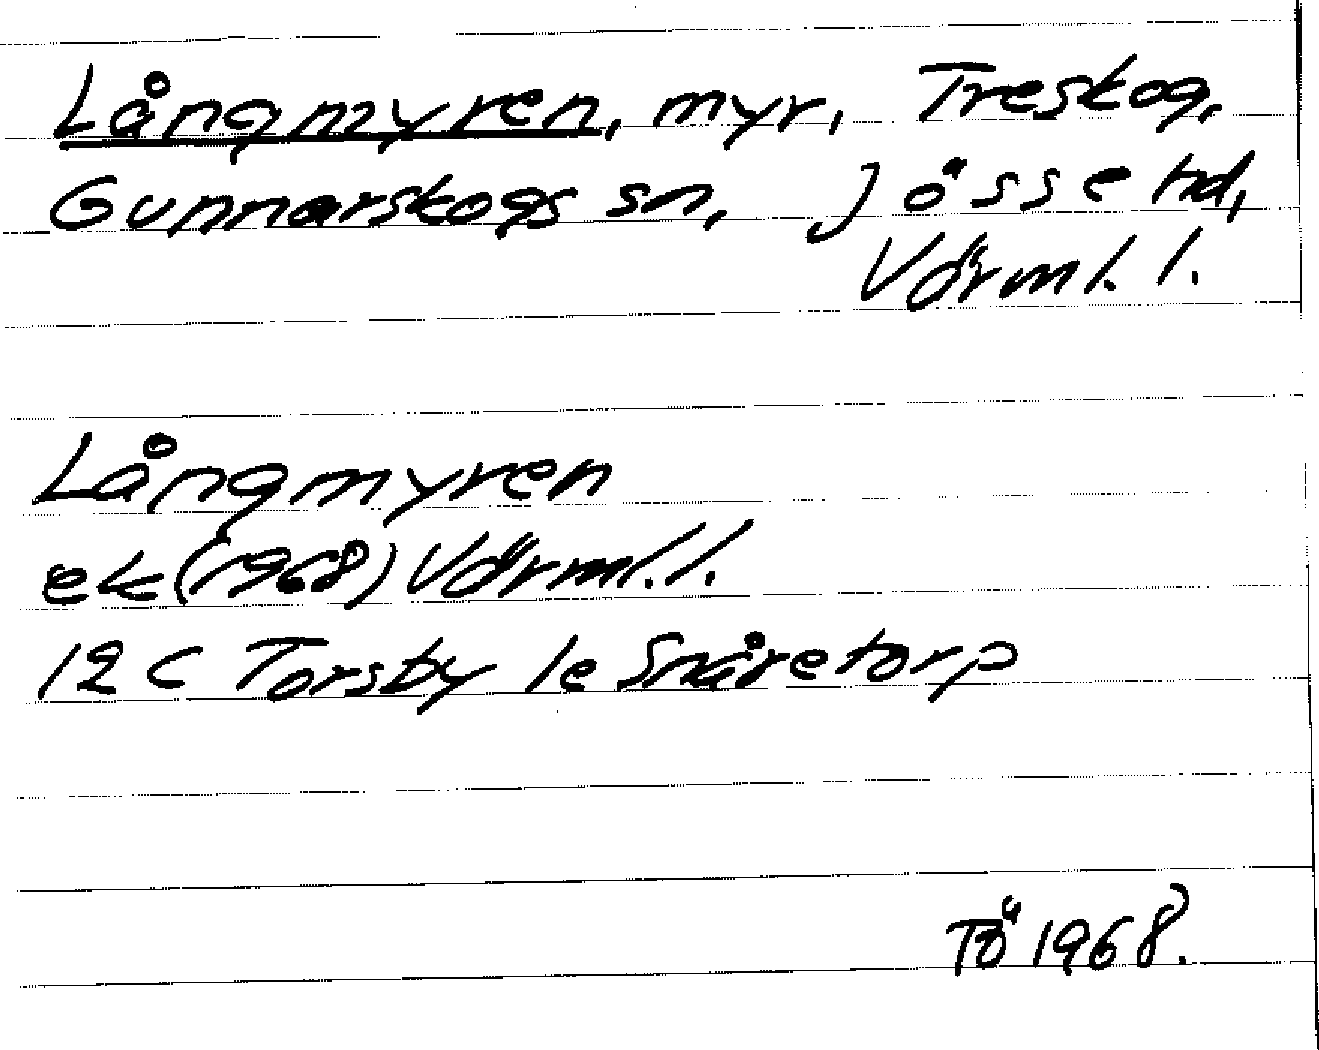 Långmyren, myr, Treskog,
Gunnarskogs sn, Jösse hd,
Värml. l.
Långmyren
ek (1968) Värml. l.
12 C Torsby 1e Snåretorp
TÖ 1968.